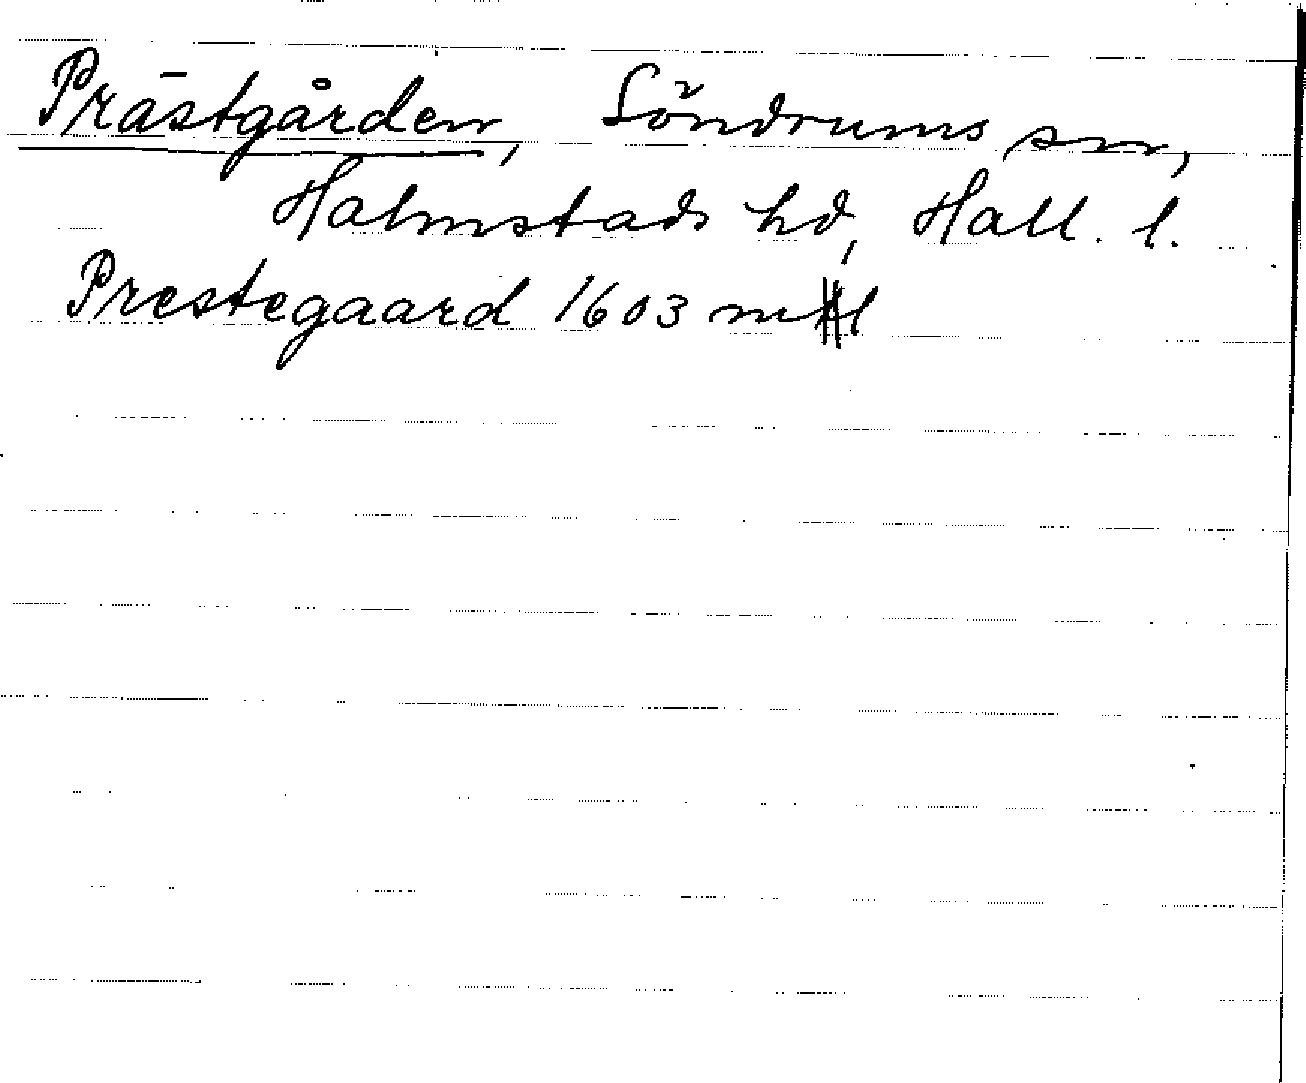 Prästgården, Söndrums sn,
Halmstads hd, Hall. l.
Prestegaard 1603 ml